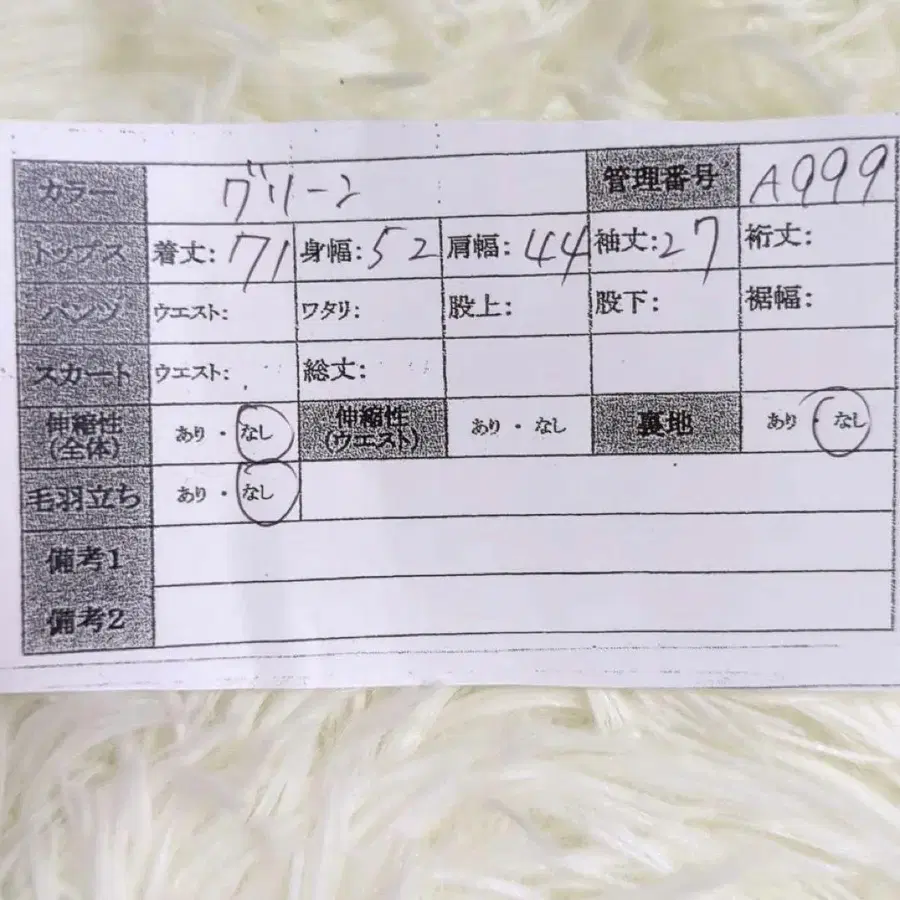 カラー グリーン 管理番号 A999
トップス 着丈:71 身幅:52 肩幅:44 袖丈:27 裄丈:
パンツ ウエスト: ワタリ: 股上: 股下: 裾幅:
スカート ウエスト: 総丈:
伸縮性(全体) あり・なし 伸縮性(ウエスト) あり・なし 裏地 あり・なし
毛羽立ち あり・なし
備考1
備考2